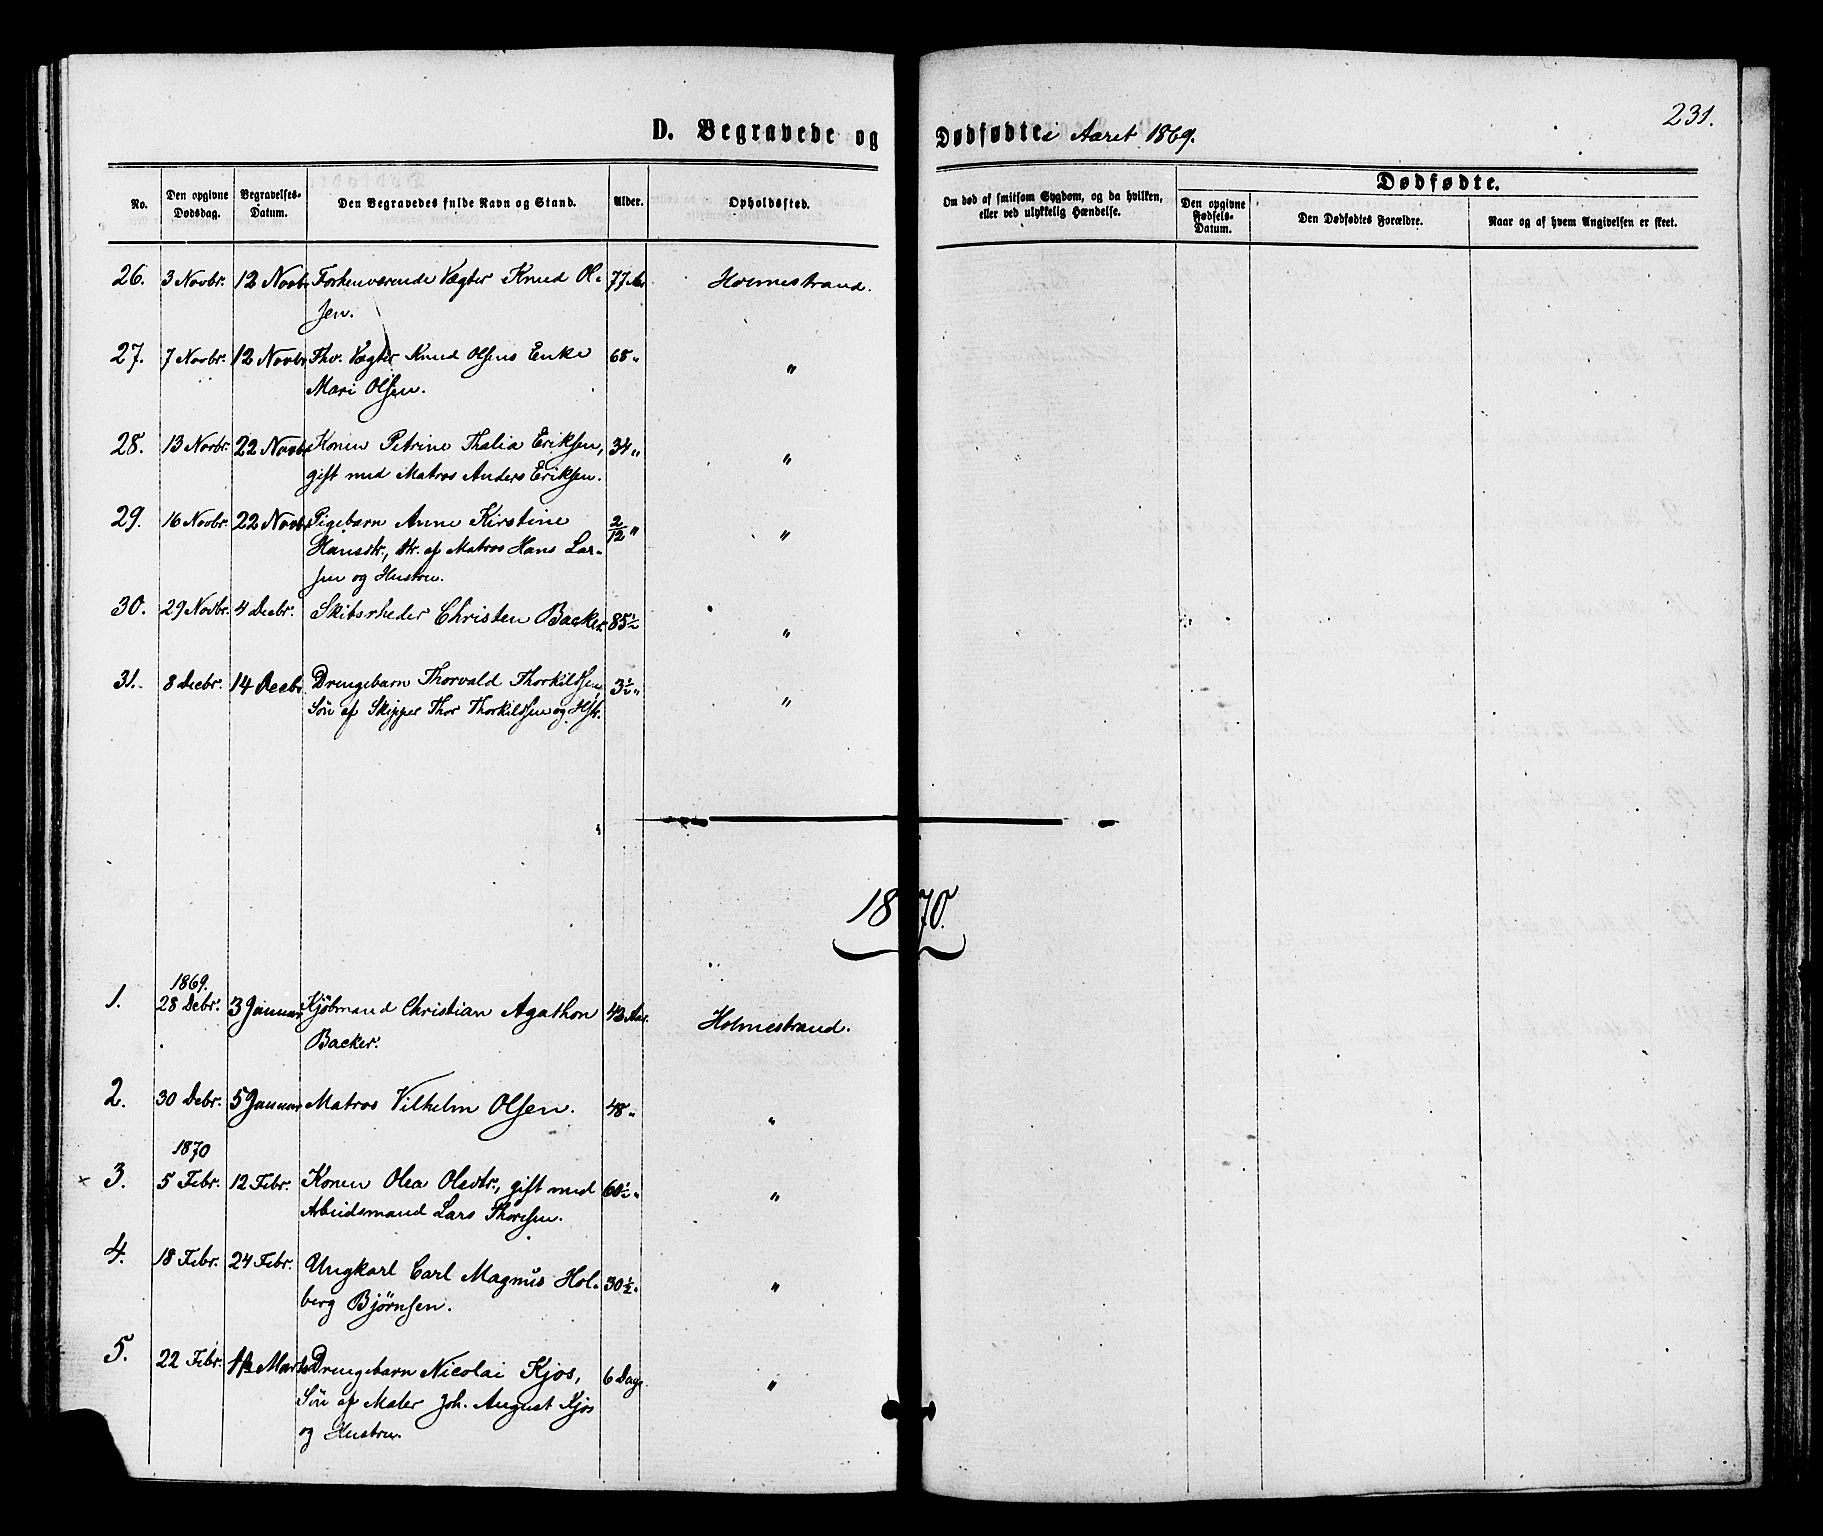 231.
D. Begravede og Dødfødte i Aaret 1869.
No. Den opgivne Dødsdag. Begravelses-Datum. Den Begravedes fulde Navn og Stand. Alder. Opholdssted. Om død af smitsom Sygdom, og da hvilken, eller ved ulykkelig Hændelse. Dødfødte.
Den opgivne Fødsels-Datum. Den Dødfødtes Forældre. Naar og af hvem Angivelsen er skeet.
26. 3 Novbr. 12 Novbr Forhenværende Vægter Knud Ol- 77 Aar Holmestrand.
sen.
27. 7 Novbr. 12 Novbr Fhv. Vægter Knud Olsens Enke 68 " "
Mari Olsen.
28. 13 Novbr. 22 Novbr Konen Petrine Thalia Eriksen, 34 " "
gift med Matros Anders Eriksen.
29. 16 Novbr. 22 Novbr Pigebarn Anne Kirstine 2/12 " "
Hansdtr., Dtr. af Matros Hans Lar-
sen og Hustru.
30. 29 Novbr. 4 Decbr. Skibsrheder Christen Backer 85½ "
31. 8 Decbr. 14 Decbr Drengebarn Thorvald Thorkildsen, 3½ " "
Søn af Skipper Thor Thorkildsen og Hstr.
1870.
1869.
1. 28 Debr. 3 Januar Kjøbmand Christian Agathon 43 Aar. Holmestrand.
Backer.
2. 30 Debr. 5 Januar Matros Vilhelm Olsen. 48 " "
1870
× 3. 5 Febr. 12 Febr. Konen Olea Olsdtr., gift med 60½ " "
Arbeidsmand Lars Thoresen.
4. 18 Febr. 24 Febr. Ungkarl Carl Magnus Hol- 30½ " "
berg Bjørnsen.
5. 22 Febr. Marts Drengebarn Nicolai Kjos, 6 Dage "
Søn af Maler Joh. August Kjos
og Hustru.